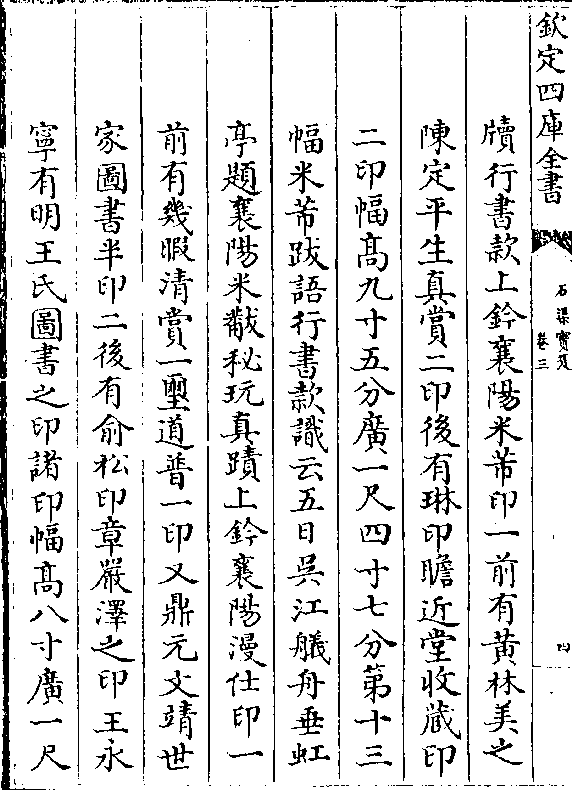 欽定四庫全書
石渠寳笈
卷三
四
牘行書款上鈐襄陽米芾印一前有黄林美之
陳定平生真賞二印後有琳印瞻近堂收藏印
二印幅髙九寸五分廣一尺四寸七分第十三
幅米芾跋語行書款識云五日吳江艤舟垂虹
亭題襄陽米黻秘玩真蹟上鈐襄陽漫仕印一
前有幾暇清賞一璽道普一印又鼎元文靖世
家圖書半印二後有俞松印章嚴澤之印王永
寧有明王氏圖書之印諸印幅髙八寸廣一尺